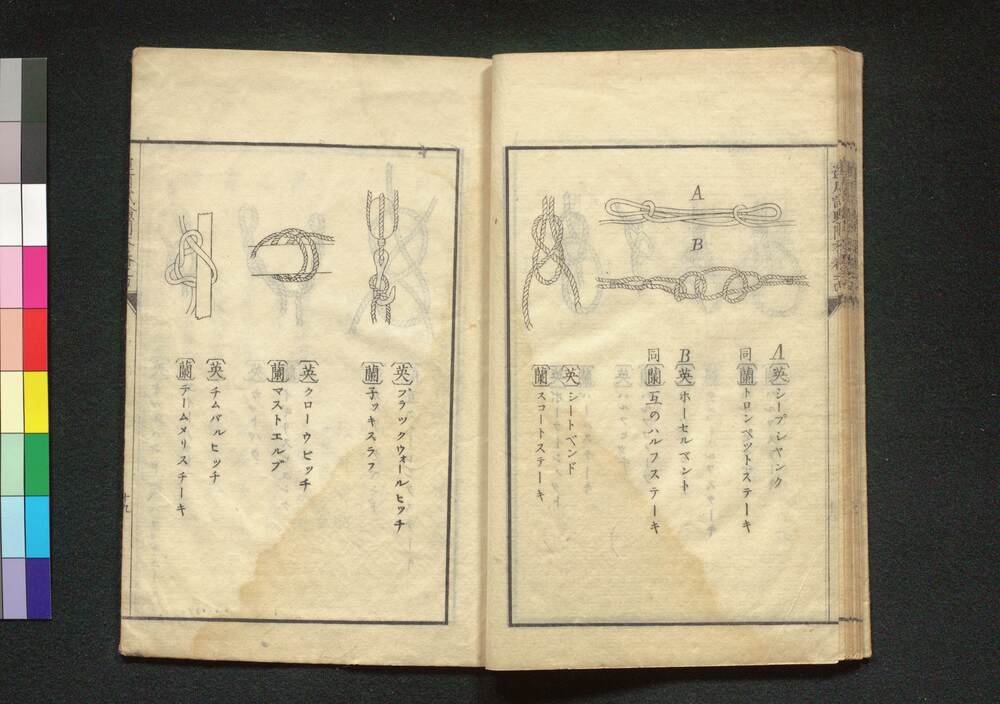 A
B
A〔英〕シープシヤンク
同〔蘭〕トロンペットステーキ
B〔英〕ホーセルベント
同〔蘭〕互のハルフステーキ
〔英〕シートベンド
〔蘭〕スコートステーキ
〔英〕ブラックウォールヒッチ
〔蘭〕子ッキスラフ
〔英〕クローウヒッチ
〔蘭〕マストエルプ
〔英〕チムバルヒッチ
〔蘭〕テームメリスチーキ